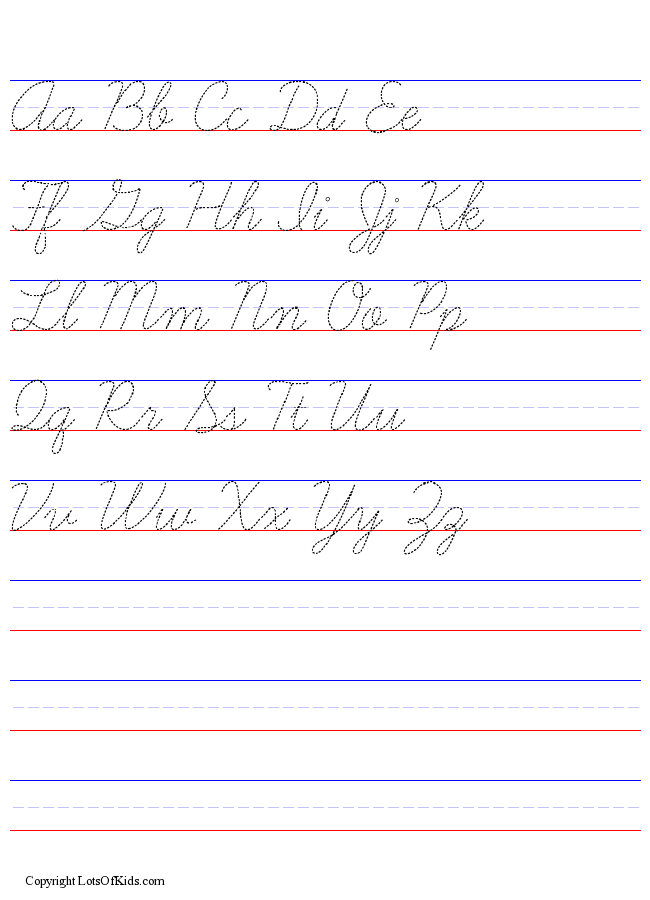 Aa Bb Cc Dd Ee
Ff Gg Hh Ii Jj Kk
Ll Mm Nn Oo Pp
Qq Rr Ss Tt Uu
Vv Ww Xx Yy Zz
Copyright LotsOfKids.com